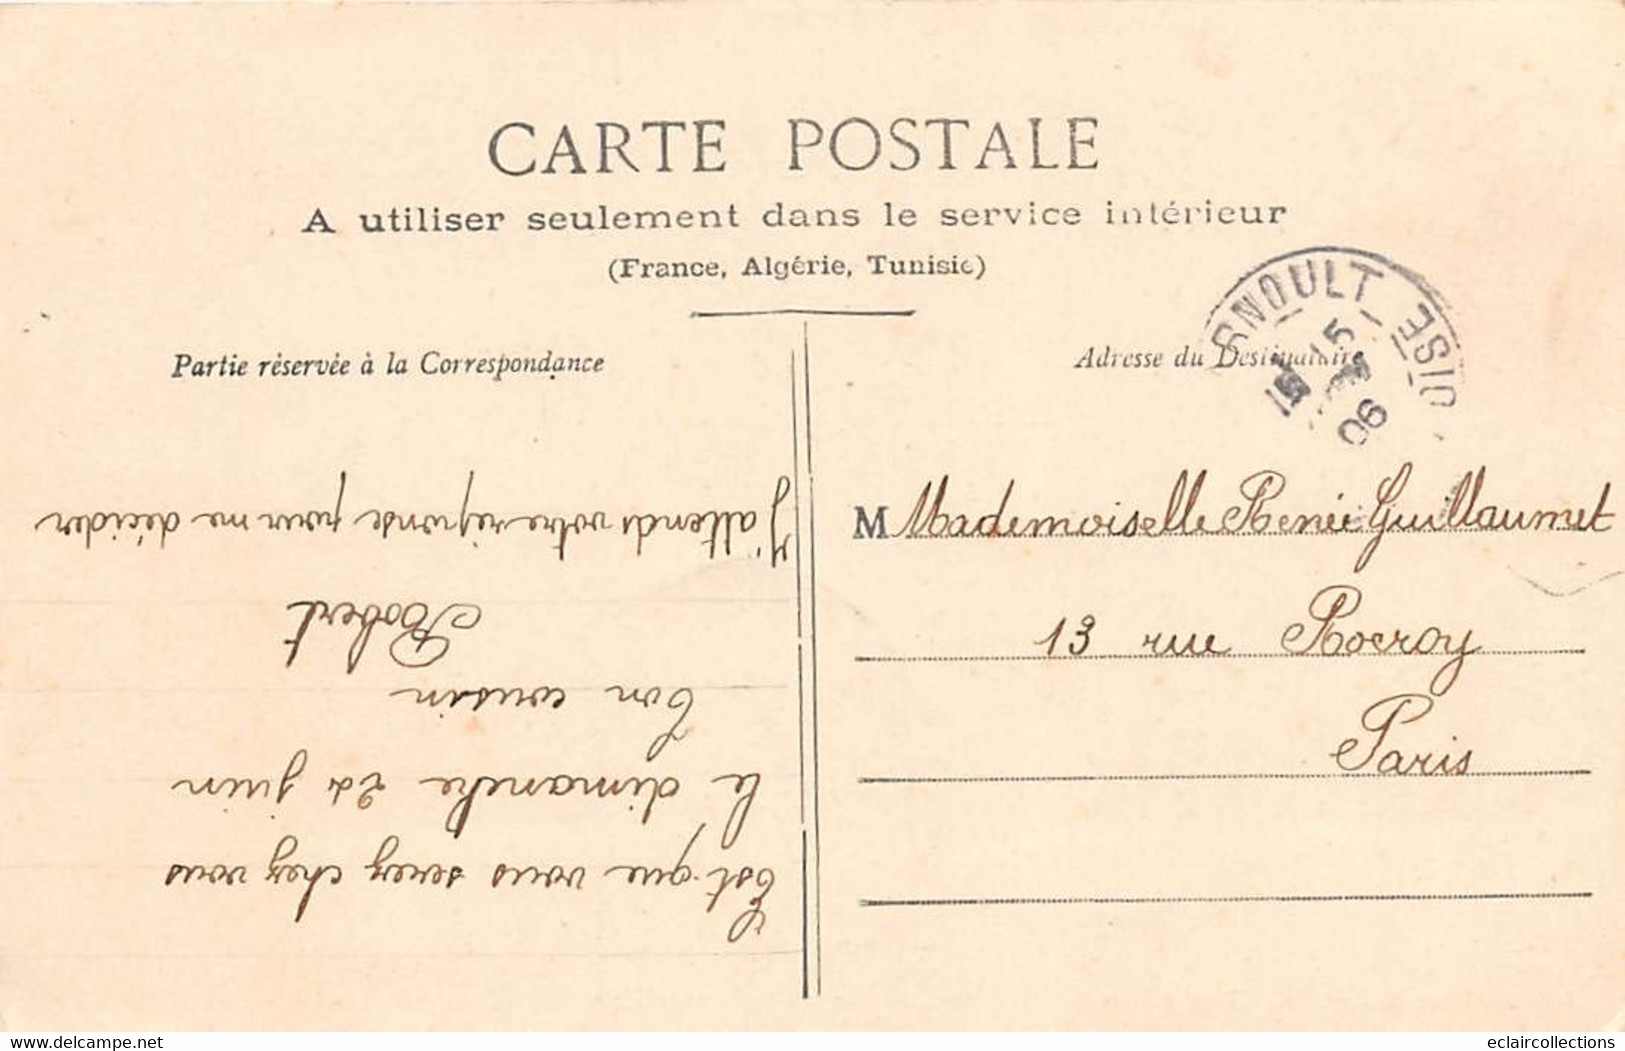 CARTE POSTALE
A utiliser seulement dans le service intérieur
(France, Algérie, Tunisie)
Partie réservée à la Correspondance
Est-que vous serez chez vous
le dimanche 24 juin
Ton cousin
Robert
J'attends votre réponse pour me décider
Adresse du Destinataire
RNOULT OISE
15
06
M Mademoiselle Renée Guillaumet
13 rue Rocroy
Paris
www.delcampe.net
eclaircollections